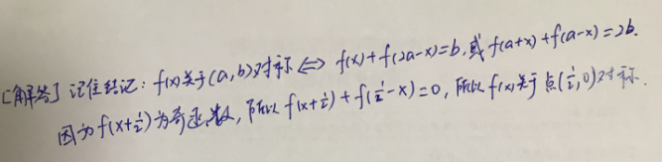 [解答] 记住结记:f(x)关于(a,b)对称⇔ f(x)+f(2a-x)=b.或f(a+x)+f(a-x)=2b.
因为f(x+1/2)为奇函数,所以 f(x+1/2)+f(1/2-x)=0,所以f(x)关于点(1/2,0)对称.